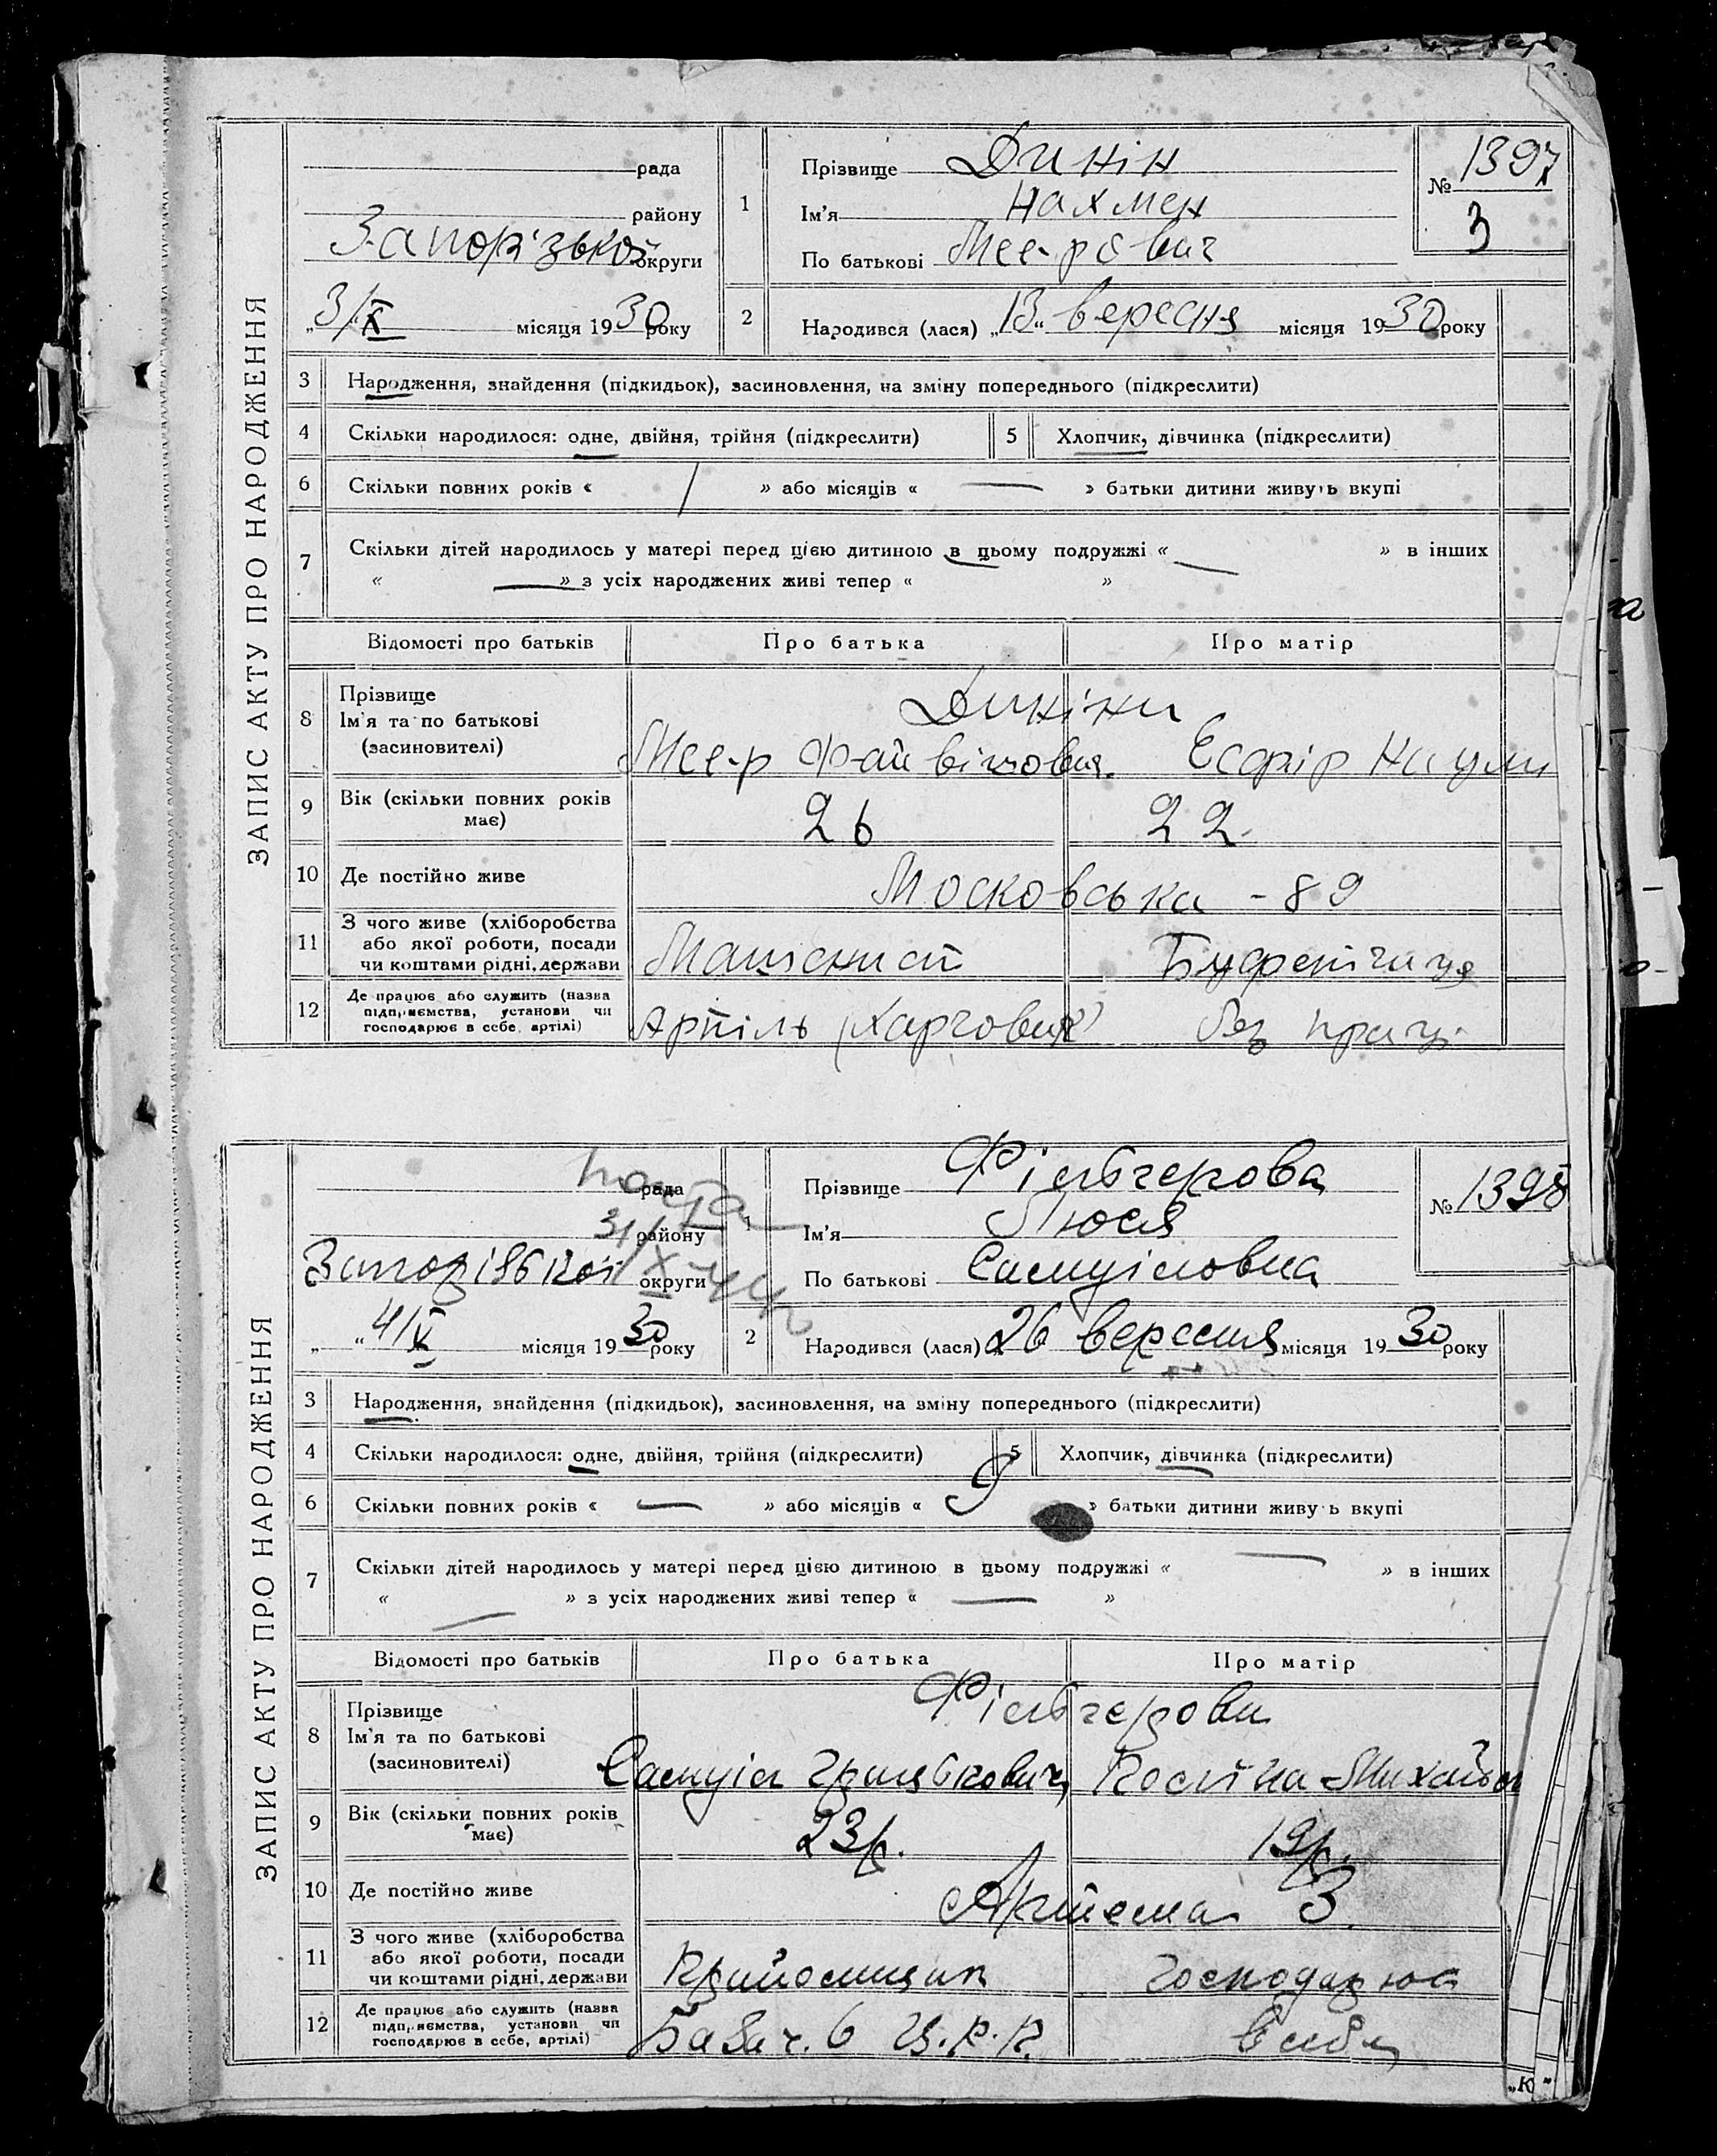 ЗАПИС АКТУ ПРО НАРОДЖЕННЯ
рада
району
Запорізької округи
„3/X місяця 1930 року
1
Прізвище Динін
Ім'я Нахмен
По батькові Меєрович
№ 1397
3
2 Народився (лася) „13“ вересня місяця 1930 року
3 Народження, знайдення (підкидьок), засиновлення, на зміну попереднього (підкреслити)
4 Скільки народилося: одне, двійня, трійня (підкреслити) 5 Хлопчик, дівчинка (підкреслити)
6 Скільки повних років « / » або місяців « — » батьки дитини живуть вкупі
7 Скільки дітей народилось у матері перед цією дитиною в цьому подружжі « — » в інших
« — » з усіх народжених живі тепер « »
Відомості про батьків Про батька Про матір
8 Прізвище
Ім'я та по батькові
(засиновителі)
Диніни
Меєр Файвішович. Есфір Наум
9 Вік (скільки повних років має) 26 22
10 Де постійно живе Московська - 89
11 З чого живе (хліборобства
або якої роботи, посади
чи коштами рідні, держави
Машиніст Буфетчиця
12 Де працює або служить (назва
підприємства, установи чи
господарює в себе, артілі)
Артіль (Харчовик) без праці
ЗАПИС АКТУ ПРО НАРОДЖЕННЯ
рада
району
Запорізької округи
31/X
„ “ 4/X місяця 1930 року
1
Прізвище Фільгерова
Ім'я Люся
По батькові Самуіловна
№ 1398
2 Народився (лася) 26 вересня місяця 1930 року
3 Народження, знайдення (підкидьок), засиновлення, на зміну попереднього (підкреслити)
4 Скільки народилося: одне, двійня, трійня (підкреслити) 5 Хлопчик, дівчинка (підкреслити)
6 Скільки повних років « — » або місяців « 9 » батьки дитини живуть вкупі
7 Скільки дітей народилось у матері перед цією дитиною в цьому подружжі « — » в інших
« — » з усіх народжених живі тепер « — »
Відомості про батьків Про батька Про матір
8 Прізвище
Ім'я та по батькові
(засиновителі)
Фільгерови
Самуіл
9 Вік (скільки повних років має) 23 р. 19 р.
10 Де постійно живе Артема 3
11 З чого живе (хліборобства
або якої роботи, посади
чи коштами рідні, держави
господарює
12 Де працює або служить (назва
підприємства, установи чи
господарює в себе, артілі)
База ч. 6 Ц.Р.К. в себе
„К“